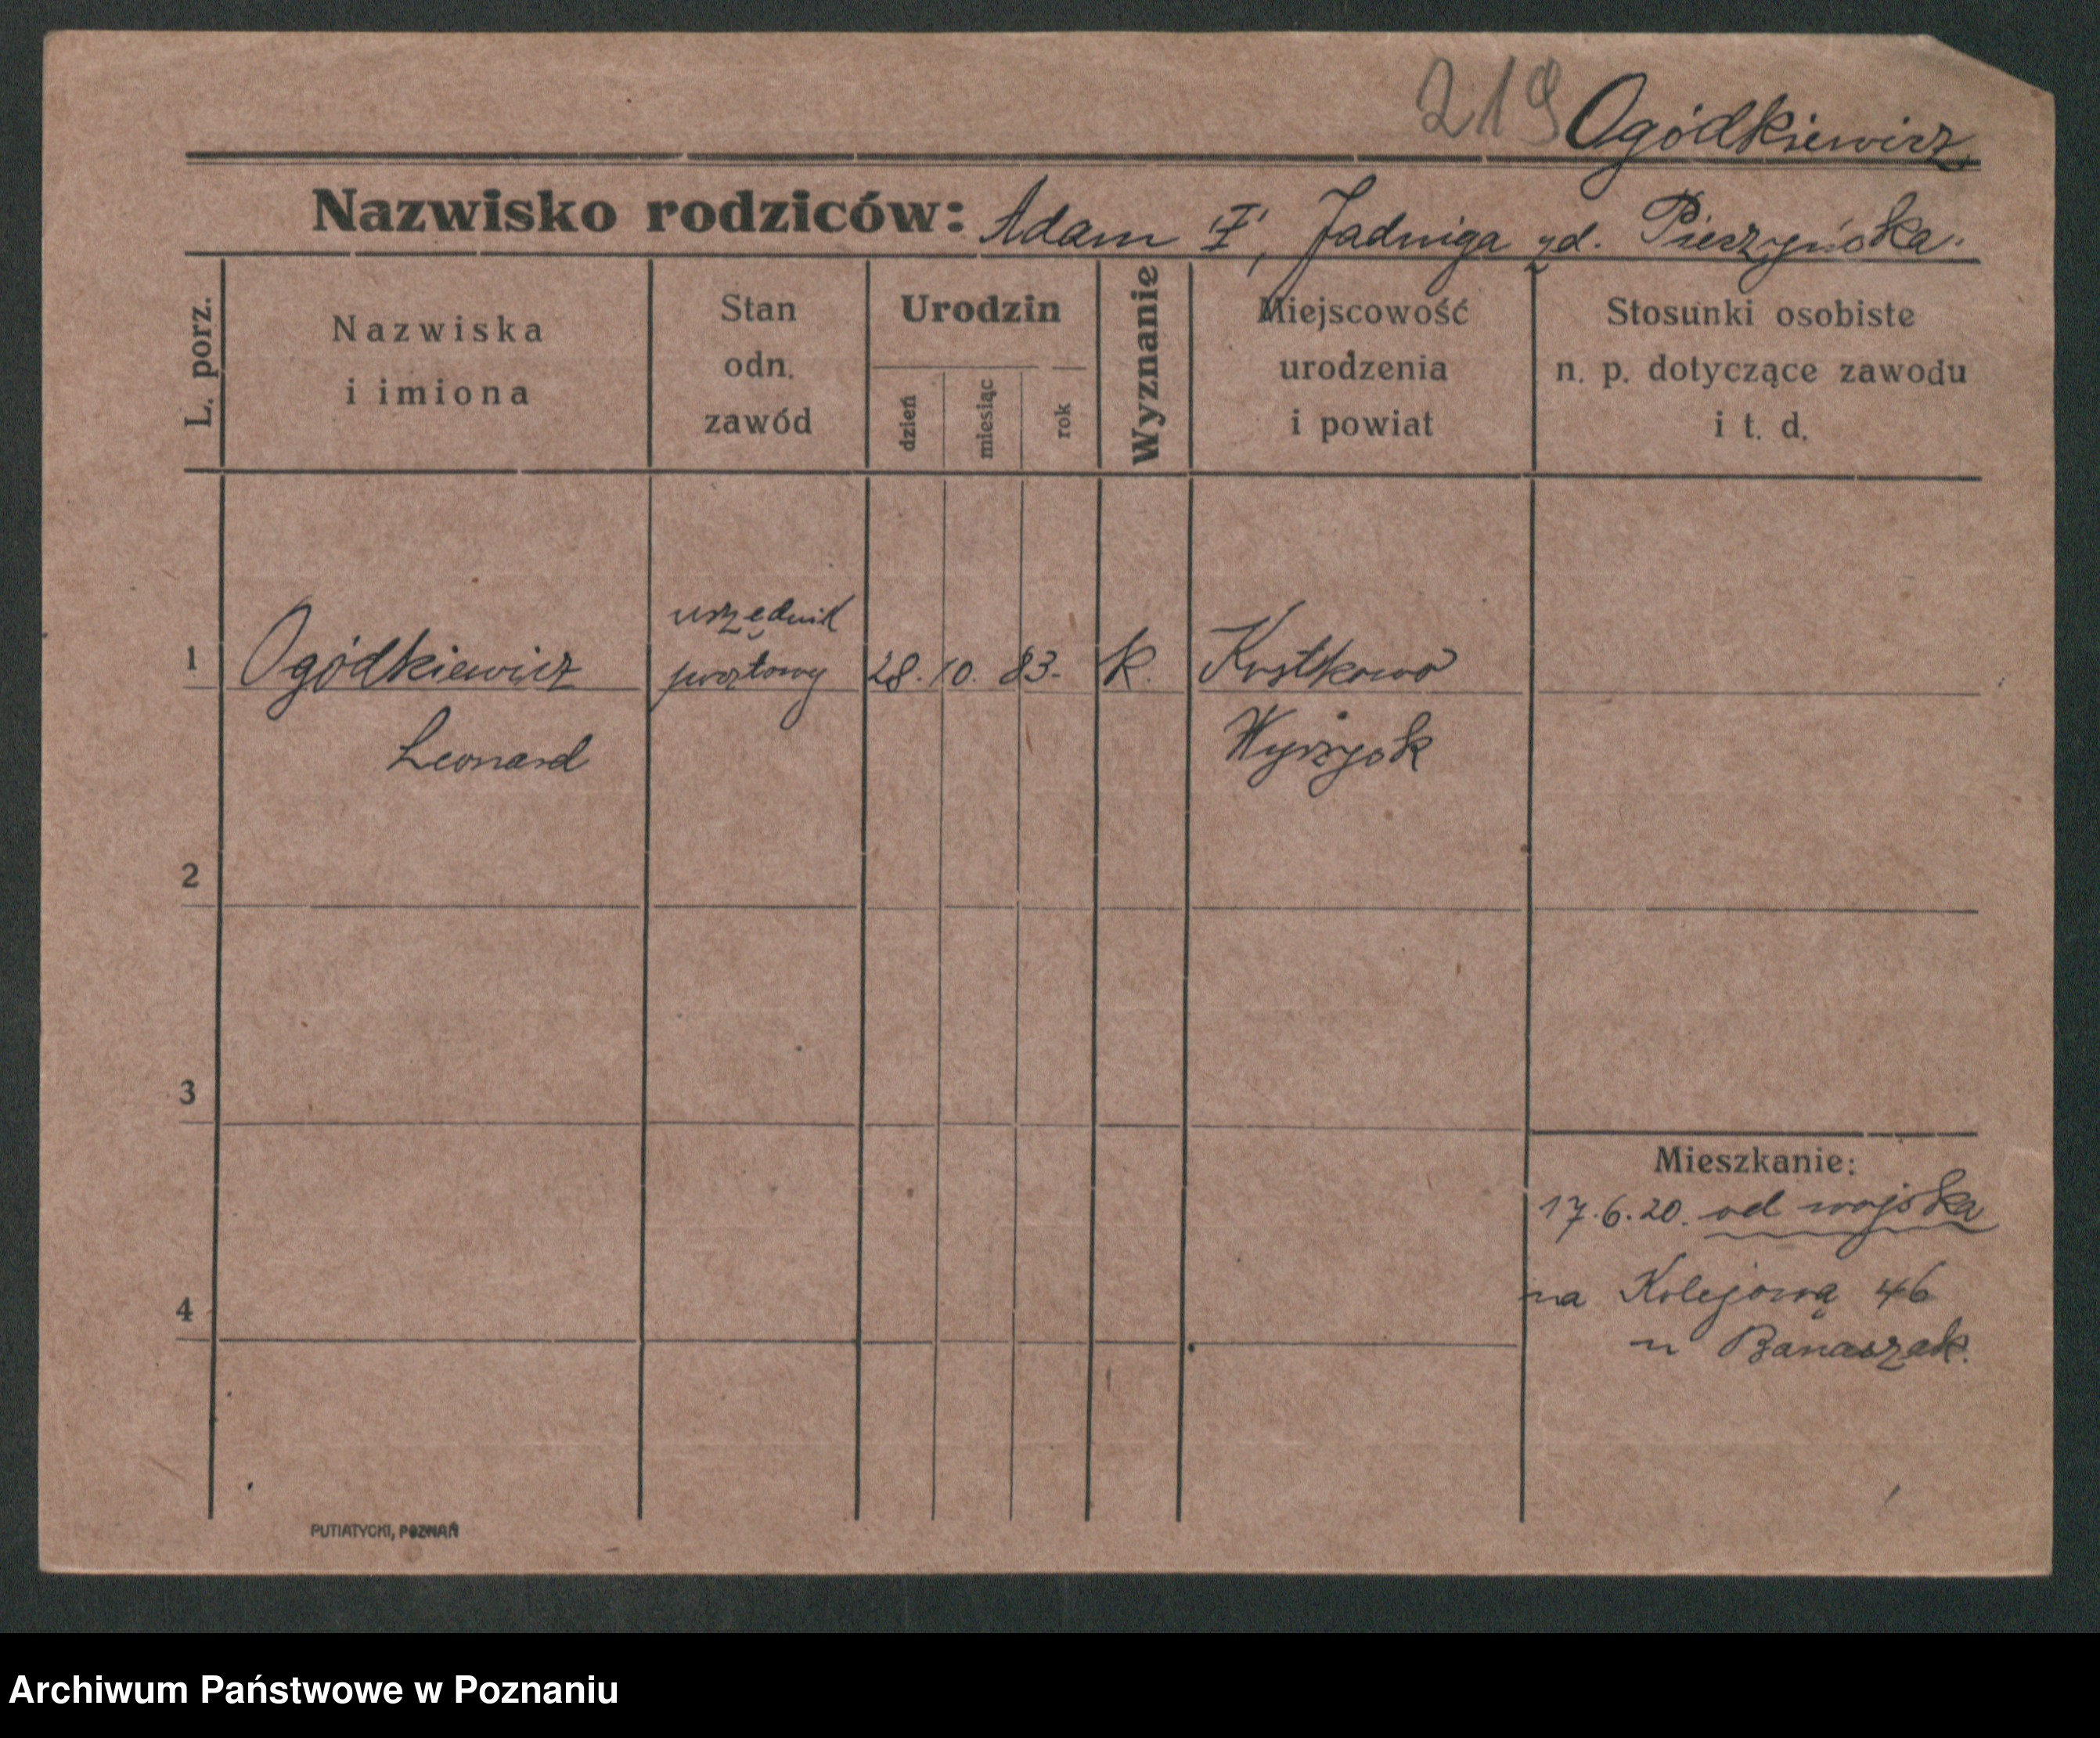 219 Ogódkiewicz
Nazwisko rodziców: Adam, Jadwiga zd. Pieszyńska.
L. porz.
Nazwiska
i imiona
Stan
odn.
zawód
Urodzin
dzień
miesiąc
rok
Wyznanie
Miejscowość
urodzenia
i powiat
Stosunki osobiste
n. p. dotyczące zawodu
i t. d.
urzędnik
1 Ogódkiewicz pocztowy 28. 10. 83. K. Kostkowo
Leonard Wyrzysk
2
3
Mieszkanie:
17.6.20. od wojska
na Kolejową 46
4
u Banaszak.
PUTIATYCKI, POZNAŃ
Archiwum Państwowe w Poznaniu